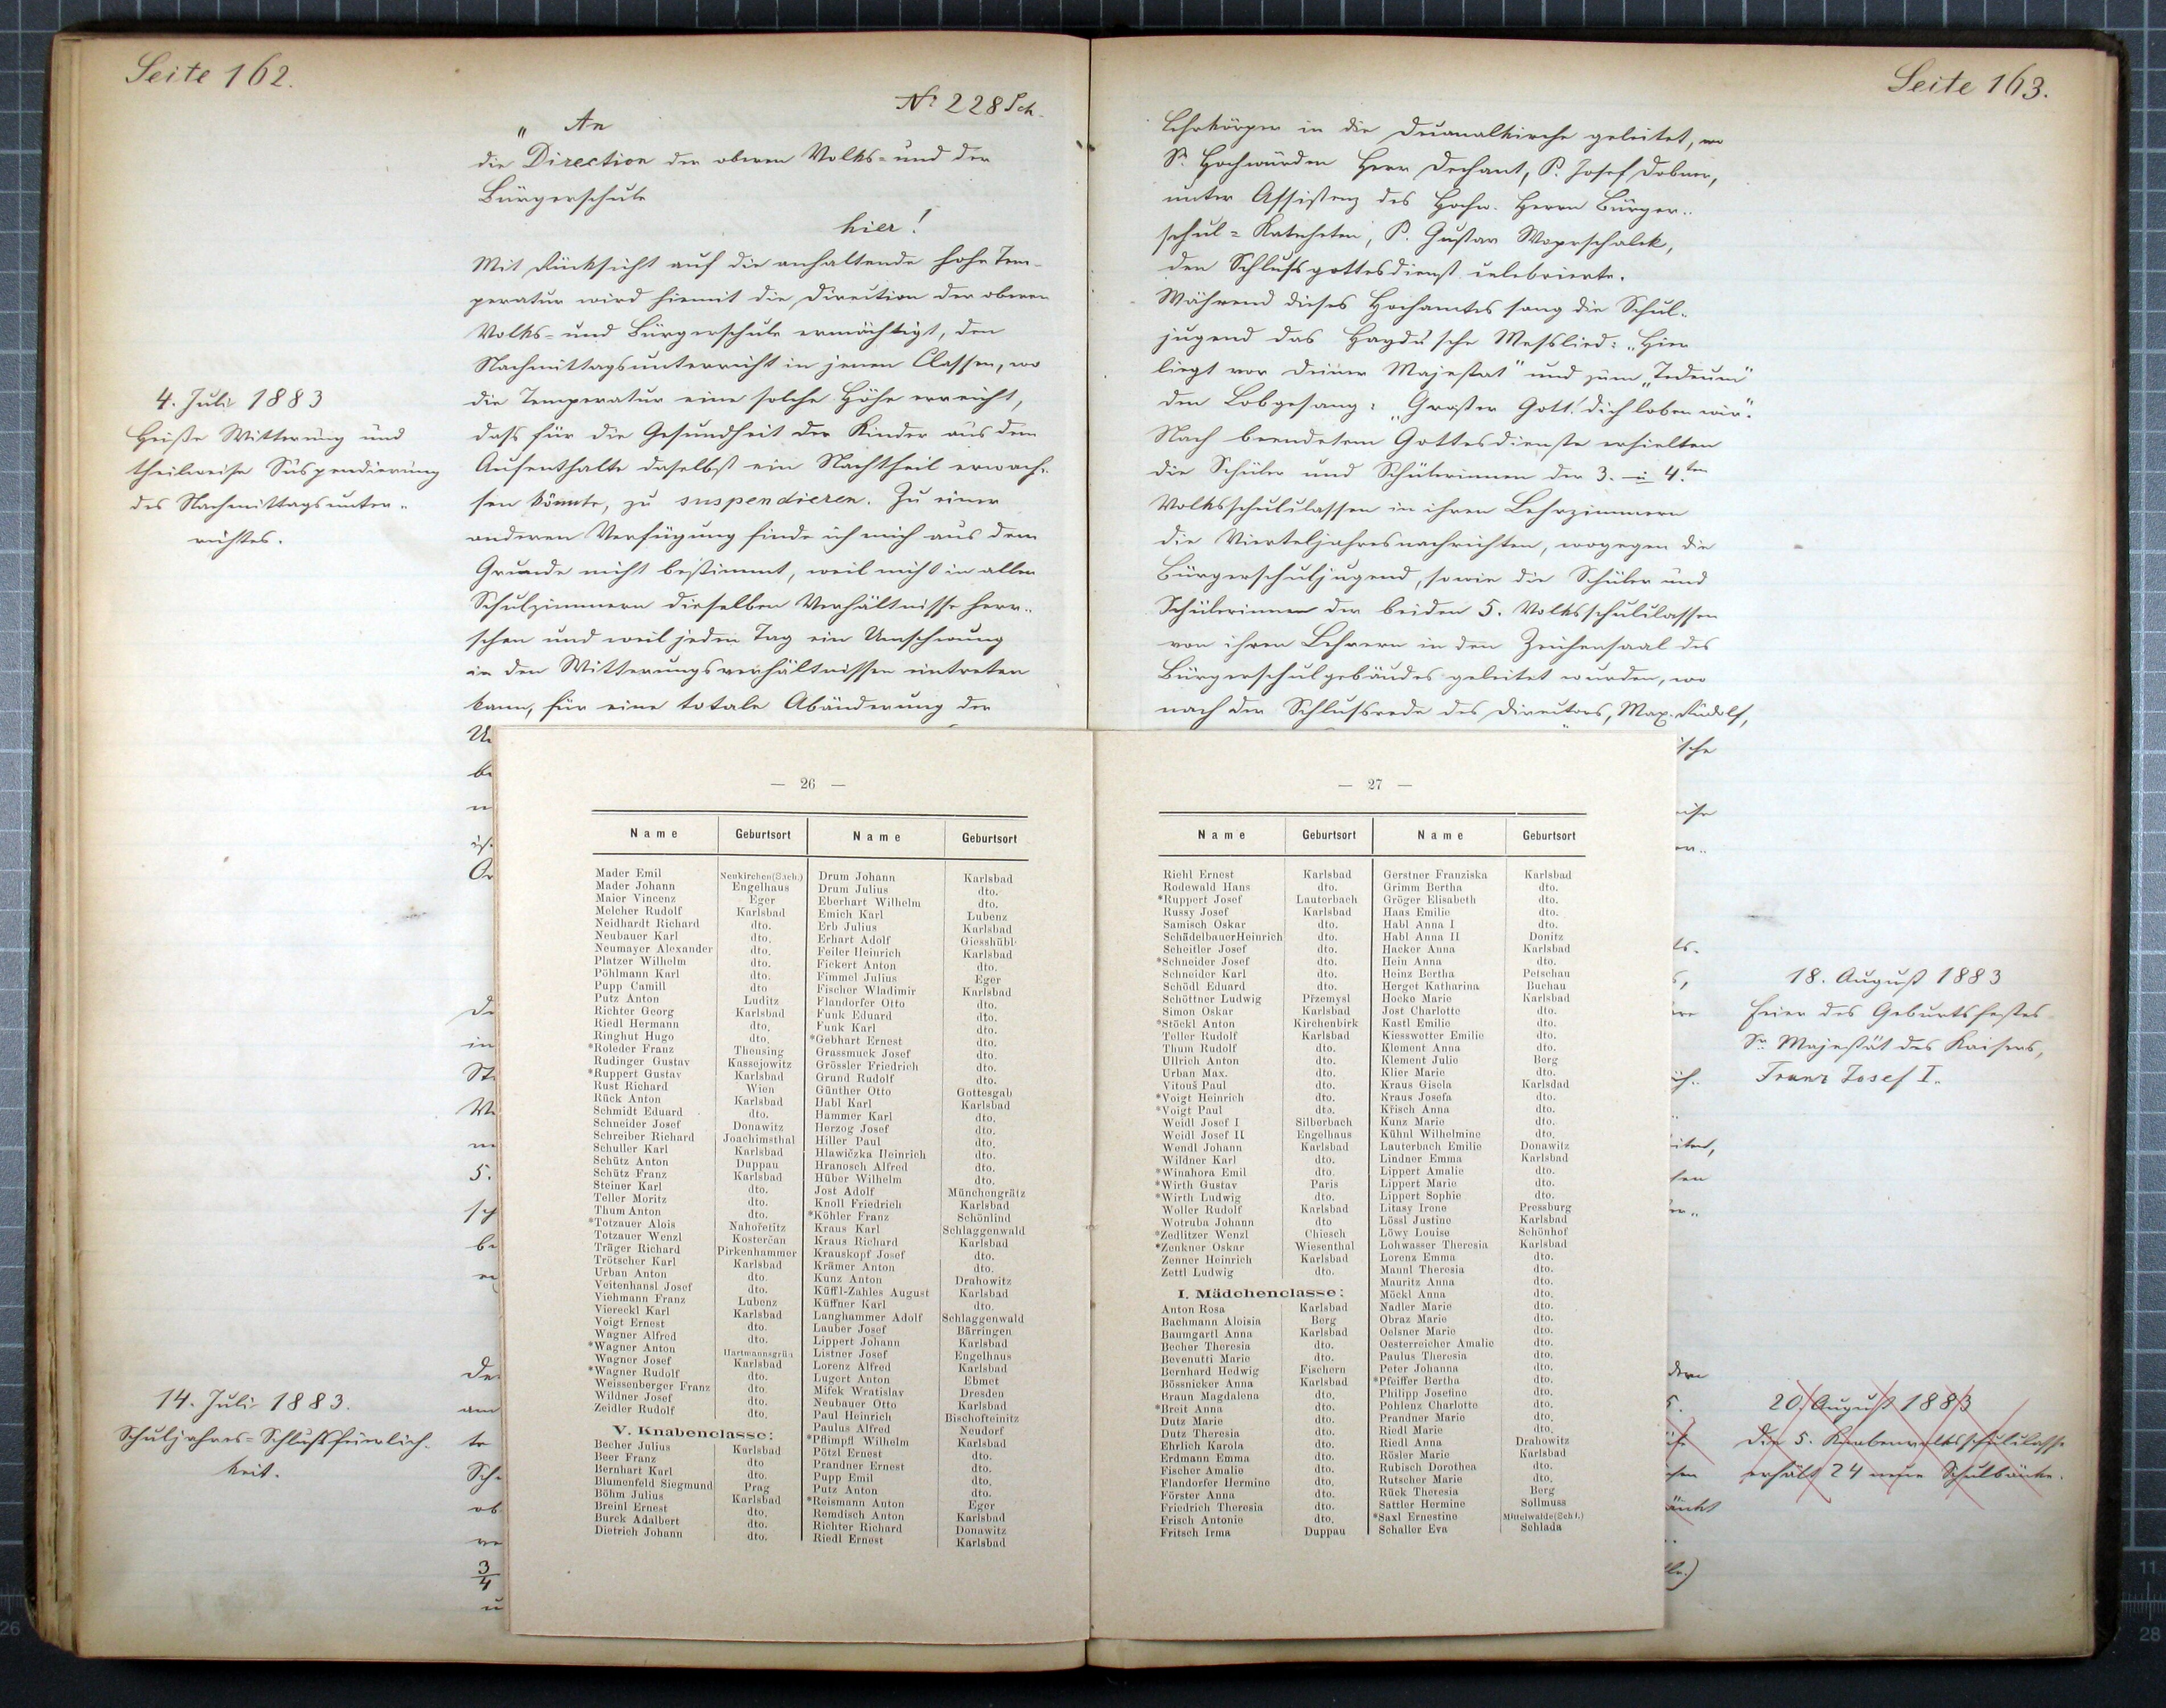 Seite 162.
№ 228 Sch.
„ An
die Direction der oberen Volks- und der
Bürgerschule
hier!
Mit Rücksicht auf die anhaltende hohe Tem-
peratur wird hiemit die Direction der oberen
Volks- und Bürgerschule ermächtigt, den
Nachmittagsunterricht in jenen Classen, wo
die Temperatur eine solche Höhe erreicht,
dass für die Gesundheit der Kinder aus dem
Aufenthalte daselbst ein Nachtheil erwach-
sen könnte, zu suspendieren. Zu einer
anderen Verfügung finde ich mich aus dem
Grunde nicht bestimmt, weil nicht in allen
Schulzimmern dieselben Verhältnisse herr-
schen und weil jeden Tag ein Umschwung
in den Witterungsverhältnissen eintreten
kann, für eine totale Abänderung der
4. Juli 1883
Heiße Witterung und
theilweise Suspendierung
des Nachmittagsunter-
richtes.
14. Juli 1883.
Schuljahres-Schlussfeierlich-
keit.
Seite 163.
Lehrkörper in die Decanalkirche geleitet, wo
Sr. Hochwürden Herr Dechant, P. Josef Dobner,
unter Assistenz des Hochw. Herrn Bürger-
schul-Katecheten, P. Gustav Woprschalek,
den Schlussgottesdienst celebrierte.
Während dieses Hochamtes sang die Schul-
jugend das Haydn'sche Messlied: „Hier
liegt vor deiner Majestät" und zum „Tedeum"
den Lobgesang: „Großer Gott! dich loben wir".
Nach beendetem Gottesdienste erhielten
die Schüler und Schülerinnen der 3. u 4.ten
Volksschulclassen in ihren Lehrzimmern
die Vierteljahresnachrichten, wogegen die
Bürgerschuljugend, sowie die Schüler und
Schülerinnen der beiden 5. Volksschulclassen
von ihren Lehrern in den Zeichensaal des
Bürgerschulgebäudes geleitet wurden, wo
nach der Schlussrede des Directors, Max. Rudolf,
18. August 1883
Feier des Geburtsfestes
Sr Majestät des Kaisers,
Franz Josef I.
20. August 1883
Die 5. Knabenvolksschulclasse
erhält 24 neue Schulbänke.
— 26 —
Name Geburtsort
Mader Emil Neukirchen(Sach.)
Mader Johann Engelhaus
Maier Vincenz Eger
Melcher Rudolf Karlsbad
Neidhardt Richard dto.
Neubauer Karl dto.
Neumayer Alexander dto.
Platzer Wilhelm dto.
Pöhlmann Karl dto.
Pupp Camill dto
Putz Anton Luditz
Richter Georg Karlsbad
Riedl Hermann dto.
Ringhut Hugo dto.
*Roleder Franz Theusing
Rudinger Gustav Kassejowitz
*Ruppert Gustav Karlsbad
Rust Richard Wien
Rück Anton Karlsbad
Schmidt Eduard dto.
Schneider Josef Donawitz
Schreiber Richard Joachimsthal
Schuller Karl Karlsbad
Schütz Anton Duppau
Schütz Franz Karlsbad
Steiner Karl dto.
Teller Moritz dto.
Thum Anton dto.
*Totzauer Alois Nahořetitz
Totzauer Wenzl Kosterčan
Träger Richard Pirkenhammer
Trötscher Karl Karlsbad
Urban Anton dto.
Veitenhansl Josef dto.
Viehmann Franz Lubenz
Viereckl Karl Karlsbad
Voigt Ernest dto.
Wagner Alfred dto.
*Wagner Anton Hartmannsgrün
Wagner Josef Karlsbad
*Wagner Rudolf dto.
Weissenberger Franz dto.
Wildner Josef dto.
Zeidler Rudolf dto.
V. Knabenclasse:
Becher Julius Karlsbad
Beer Franz dto
Bernhart Karl dto.
Blumenfeld Siegmund Prag
Böhm Julius Karlsbad
Breinl Ernest dto.
Burck Adalbert dto.
Dietrich Johann dto.
Name Geburtsort
Drum Johann Karlsbad
Drum Julius dto.
Eberhart Wilhelm dto.
Emich Karl Lubenz
Erb Julius Karlsbad
Erhart Adolf Giesshübl
Feiler Heinrich Karlsbad
Fickert Anton dto.
Fimmel Julius Eger
Fischer Wladimir Karlsbad
Flandorfer Otto dto.
Funk Eduard dto.
Funk Karl dto.
*Gebhart Ernest dto.
Grassmuck Josef dto.
Grössler Friedrich dto.
Grund Rudolf dto.
Günther Otto Gottesgab
Habl Karl Karlsbad
Hammer Karl dto.
Herzog Josef dto.
Hiller Paul dto.
Hlawiczka Heinrich dto.
Hranosch Alfred dto.
Hüber Wilhelm dto.
Jost Adolf Münchengrätz
Knoll Friedrich Karlsbad
*Köhler Franz Schönlind
Kraus Karl Schlaggenwald
Kraus Richard Karlsbad
Krauskopf Josef dto.
Krämer Anton dto.
Kunz Anton Drahowitz
Küffl-Zahles August Karlsbad
Küffner Karl dto.
Langhammer Adolf Schlaggenwald
Lauber Josef Bärringen
Lippert Johann Karlsbad
Listner Josef Engelhaus
Lorenz Alfred Karlsbad
Lugert Anton Ebmet
Mifek Wratislav Dresden
Neubauer Otto Karlsbad
Paul Heinrich Bischofteinitz
Paulus Alfred Neudorf
*Pflimpfl Wilhelm Karlsbad
Pötzl Ernest dto.
Prandner Ernest dto.
Pupp Emil dto.
Putz Anton dto.
*Reismann Anton Eger
Remdisch Anton Karlsbad
Richter Richard Donawitz
Riedl Ernest Karlsbad
— 27 —
Name Geburtsort
Richl Ernest Karlsbad
Rodewald Hans dto.
*Ruppert Josef Lauterbach
Russy Josef Karlsbad
Samisch Oskar dto.
SchädelbauerHeinrich dto.
Scheitler Josef dto.
*Schneider Josef dto.
Schneider Karl dto.
Schödl Eduard dto.
Schöttner Ludwig Přzemysl
Simon Oskar Karlsbad
*Stöckl Anton Kirchenbirk
Teller Rudolf Karlsbad
Thum Rudolf dto.
Ullrich Anton dto.
Urban Max. dto.
Vitouš Paul dto.
*Voigt Heinrich dto.
*Voigt Paul dto.
Weidl Josef I Silberbach
Weidl Josef II Engelhaus
Wendl Johann Karlsbad
Wildner Karl dto.
*Winahora Emil dto.
*Wirth Gustav Paris
*Wirth Ludwig dto.
Woller Rudolf Karlsbad
Wotruba Johann dto
*Zedlitzer Wenzl Chiesch
*Zenkner Oskar Wiesenthal
Zenner Heinrich Karlsbad
Zettl Ludwig dto.
I. Mädchenclasse:
Anton Rosa Karlsbad
Bachmann Aloisia Berg
Baumgartl Anna Karlsbad
Becher Theresia dto.
Bevenutti Marie dto.
Bernhard Hedwig Fischern
Bössnicker Anna Karlsbad
Braun Magdalena dto.
*Breit Anna dto.
Dutz Marie dto.
Dutz Theresia dto.
Ehrlich Karola dto.
Erdmann Emma dto.
Fischer Amalie dto.
Flandorfer Hermine dto.
Förster Anna dto.
Friedrich Theresia dto.
Frisch Antonie dto.
Fritsch Irma Duppau
Name Geburtsort
Gerstner Franziska Karlsbad
Grimm Bertha dto.
Gröger Elisabeth dto.
Haas Emilie dto.
Habl Anna I dto.
Habl Anna II Donitz
Hacker Anna Karlsbad
Hein Anna dto.
Heinz Bertha Petschau
Herget Katharina Buchau
Hocke Marie Karlsbad
Jost Charlotte dto.
Kastl Emilie dto.
Kiesswetter Emilie dto.
Klement Anna dto.
Klement Julie Berg
Klier Marie dto.
Kraus Gisela Karlsdad
Kraus Josefa dto.
Křisch Anna dto.
Kunz Marie dto.
Kühnl Wilhelmine dto.
Lauterbach Emilie Donawitz
Lindner Emma Karlsbad
Lippert Amalie dto.
Lippert Marie dto.
Lippert Sophie dto.
Litasy Irene Pressburg
Lössl Justine Karlsbad
Löwy Louise Schönhof
Lohwasser Theresia Karlsbad
Lorenz Emma dto.
Mannl Theresia dto.
Mauritz Anna dto.
Möckl Anna dto.
Nadler Marie dto.
Obraz Marie dto.
Oelsner Marie dto.
Oesterreicher Amalie dto.
Paulus Theresia dto.
Peter Johanna dto.
*Pfeiffer Bertha dto.
Philipp Josefine dto.
Pohlenz Charlotte dto.
Prandner Marie dto.
Riedl Marie dto.
Riedl Anna Drahowitz
Rösler Marie Karlsbad
Rubisch Dorothea dto.
Rutscher Marie dto.
Rück Theresia Berg
Sattler Hermine Sollmuss
*Saxl Ernestine Mittelwalde(Schl.)
Schaller Eva Schlada